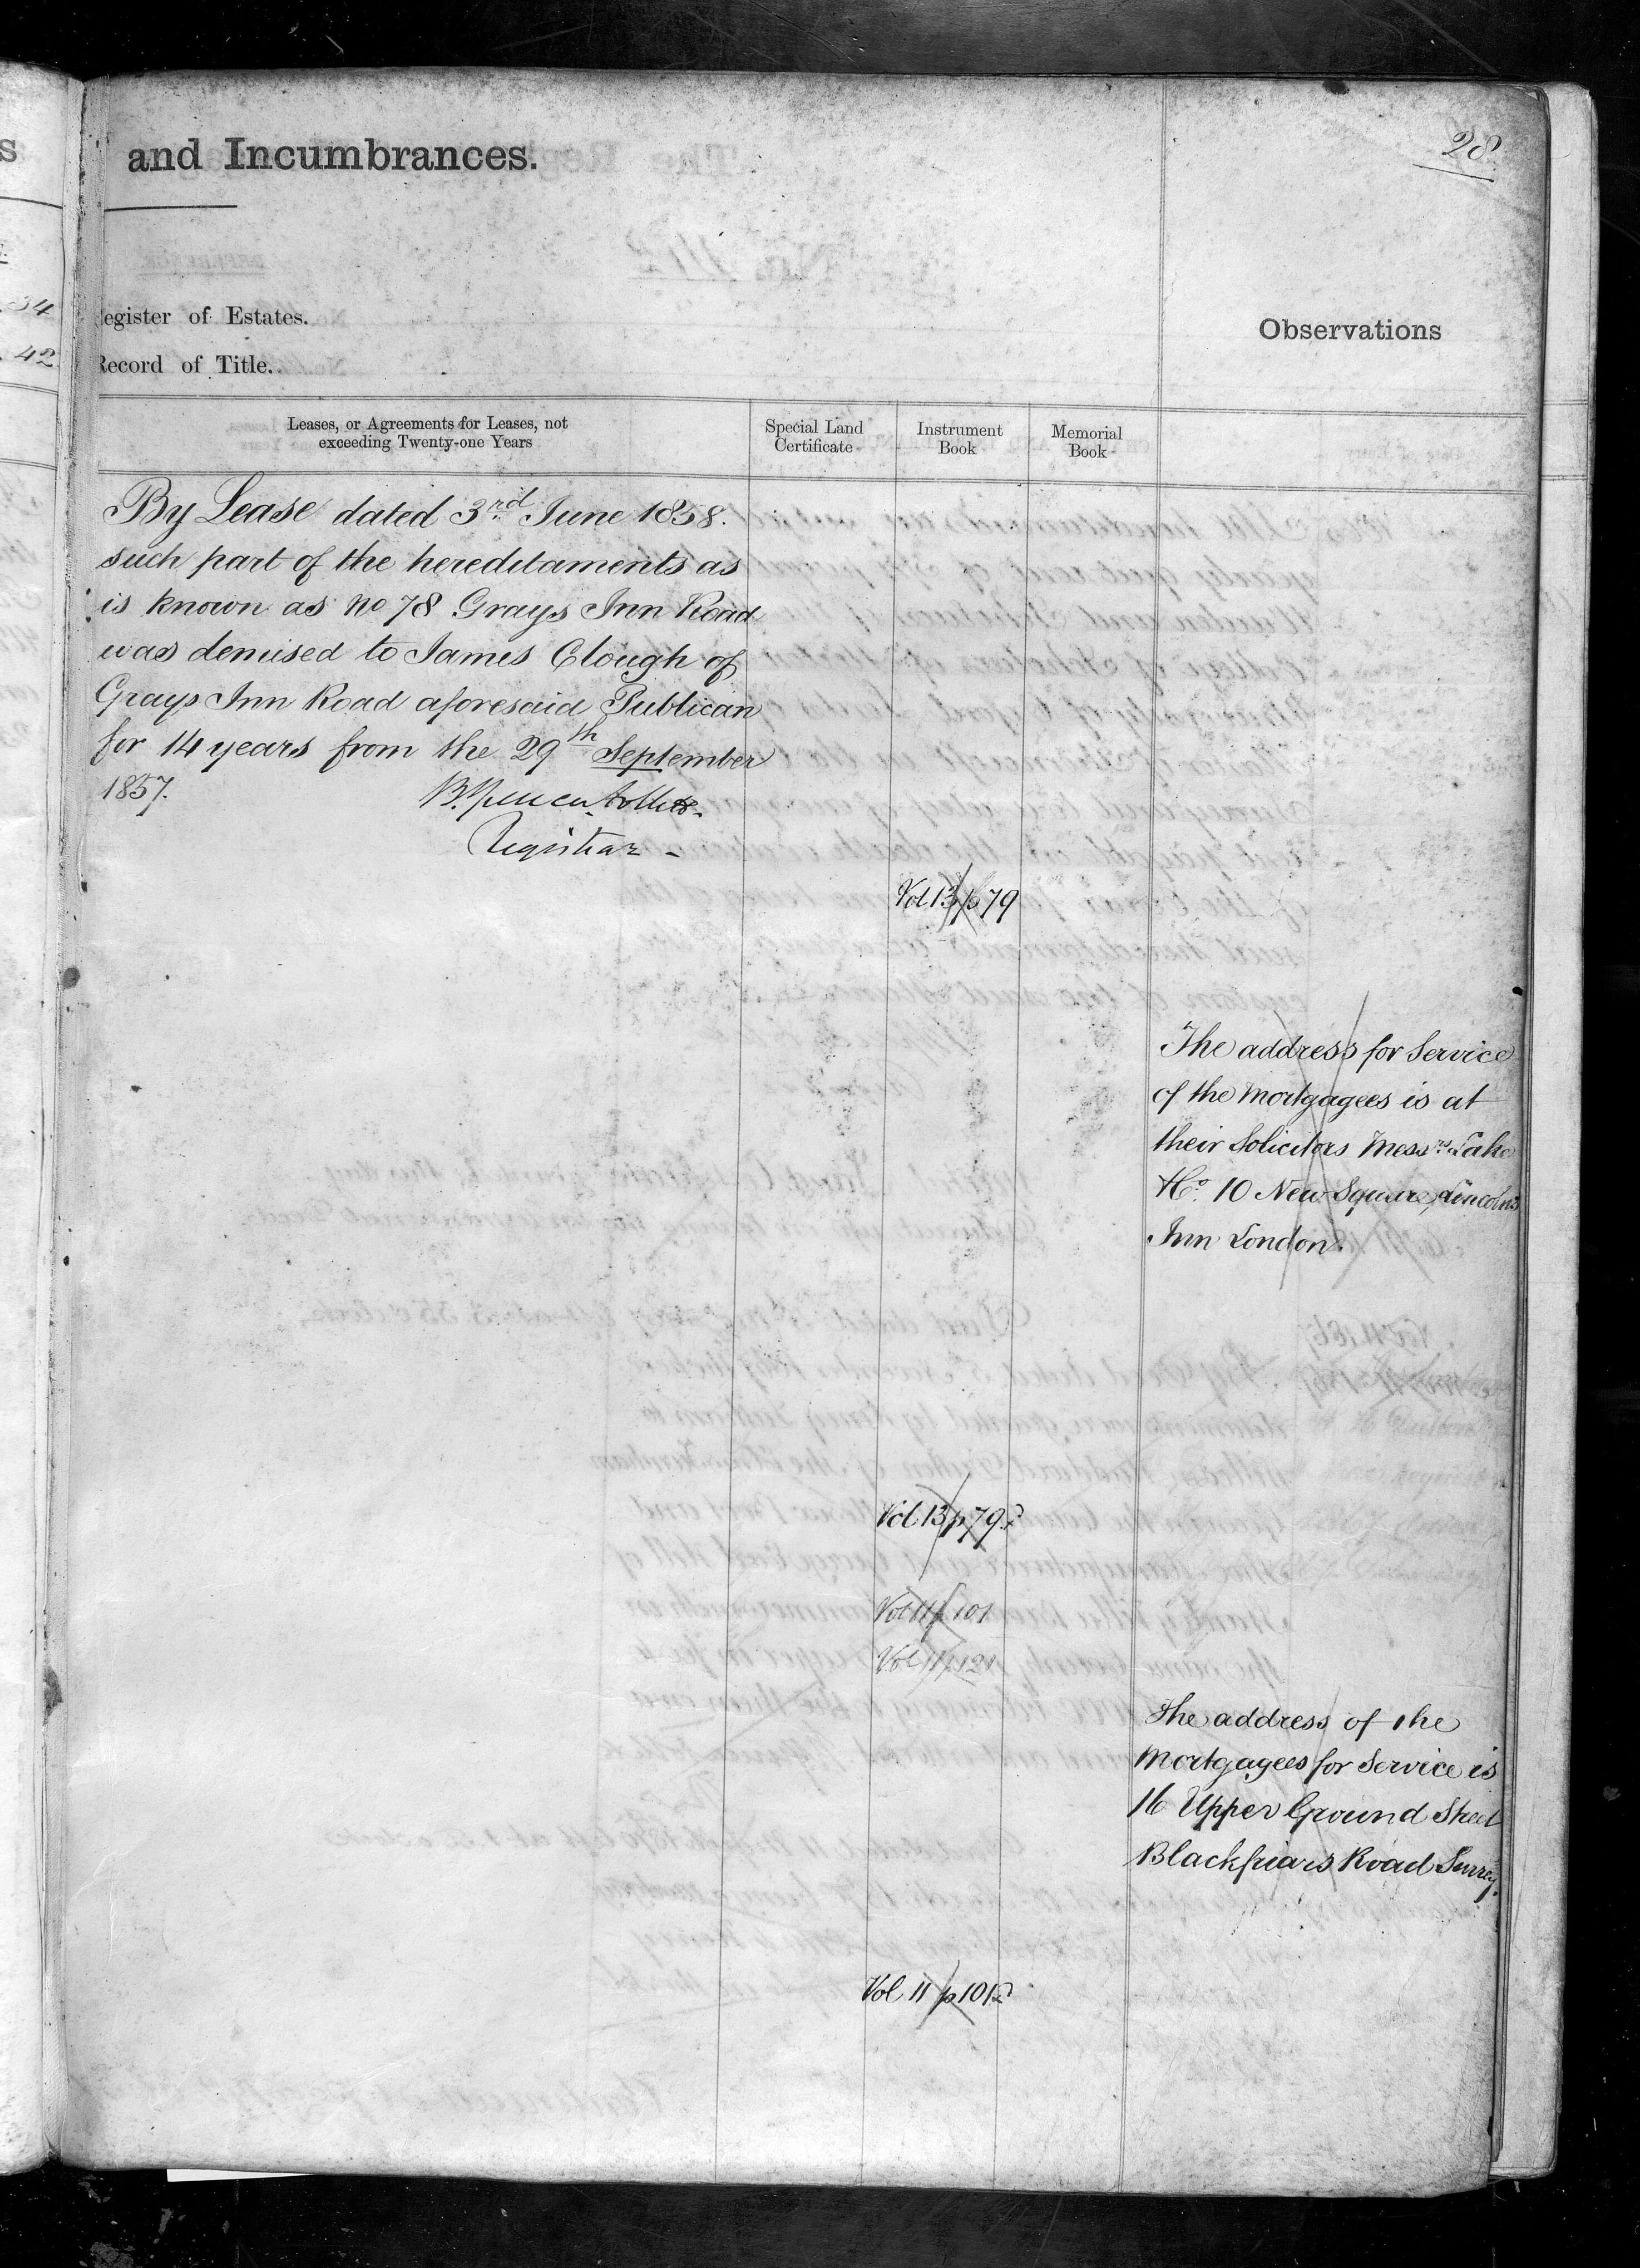 and Incumbrances.
28
egister of Estates.
Record of Title.
Observations
34
42
Leases, or Agreements for Leases, not
exceeding Twenty-one Years
Special Land
Certificate
Instrument
Book
Memorial
Book
By Lease dated 3rd June 1858.
such part of the hereditaments as
is known as No 78 Grays Inn Road
was demised to James Clough of
Grays Inn Road aforesaid Publican
for 14 years from the 29th September
1857.
Registrar
Vol 13 p 79
The address for Service
of the Mortgagees is at
their Solicitors Messrs Lake
&Co. 10 New Square, Lincolns
Inn London.
Vol 13 p 79.
Vol 11 p 101
Vol 11 p 121
The address of the
Mortgagees for Service is
16 Upper Ground Street
Blackfriars Road Surrey.
Vol 11 p 101